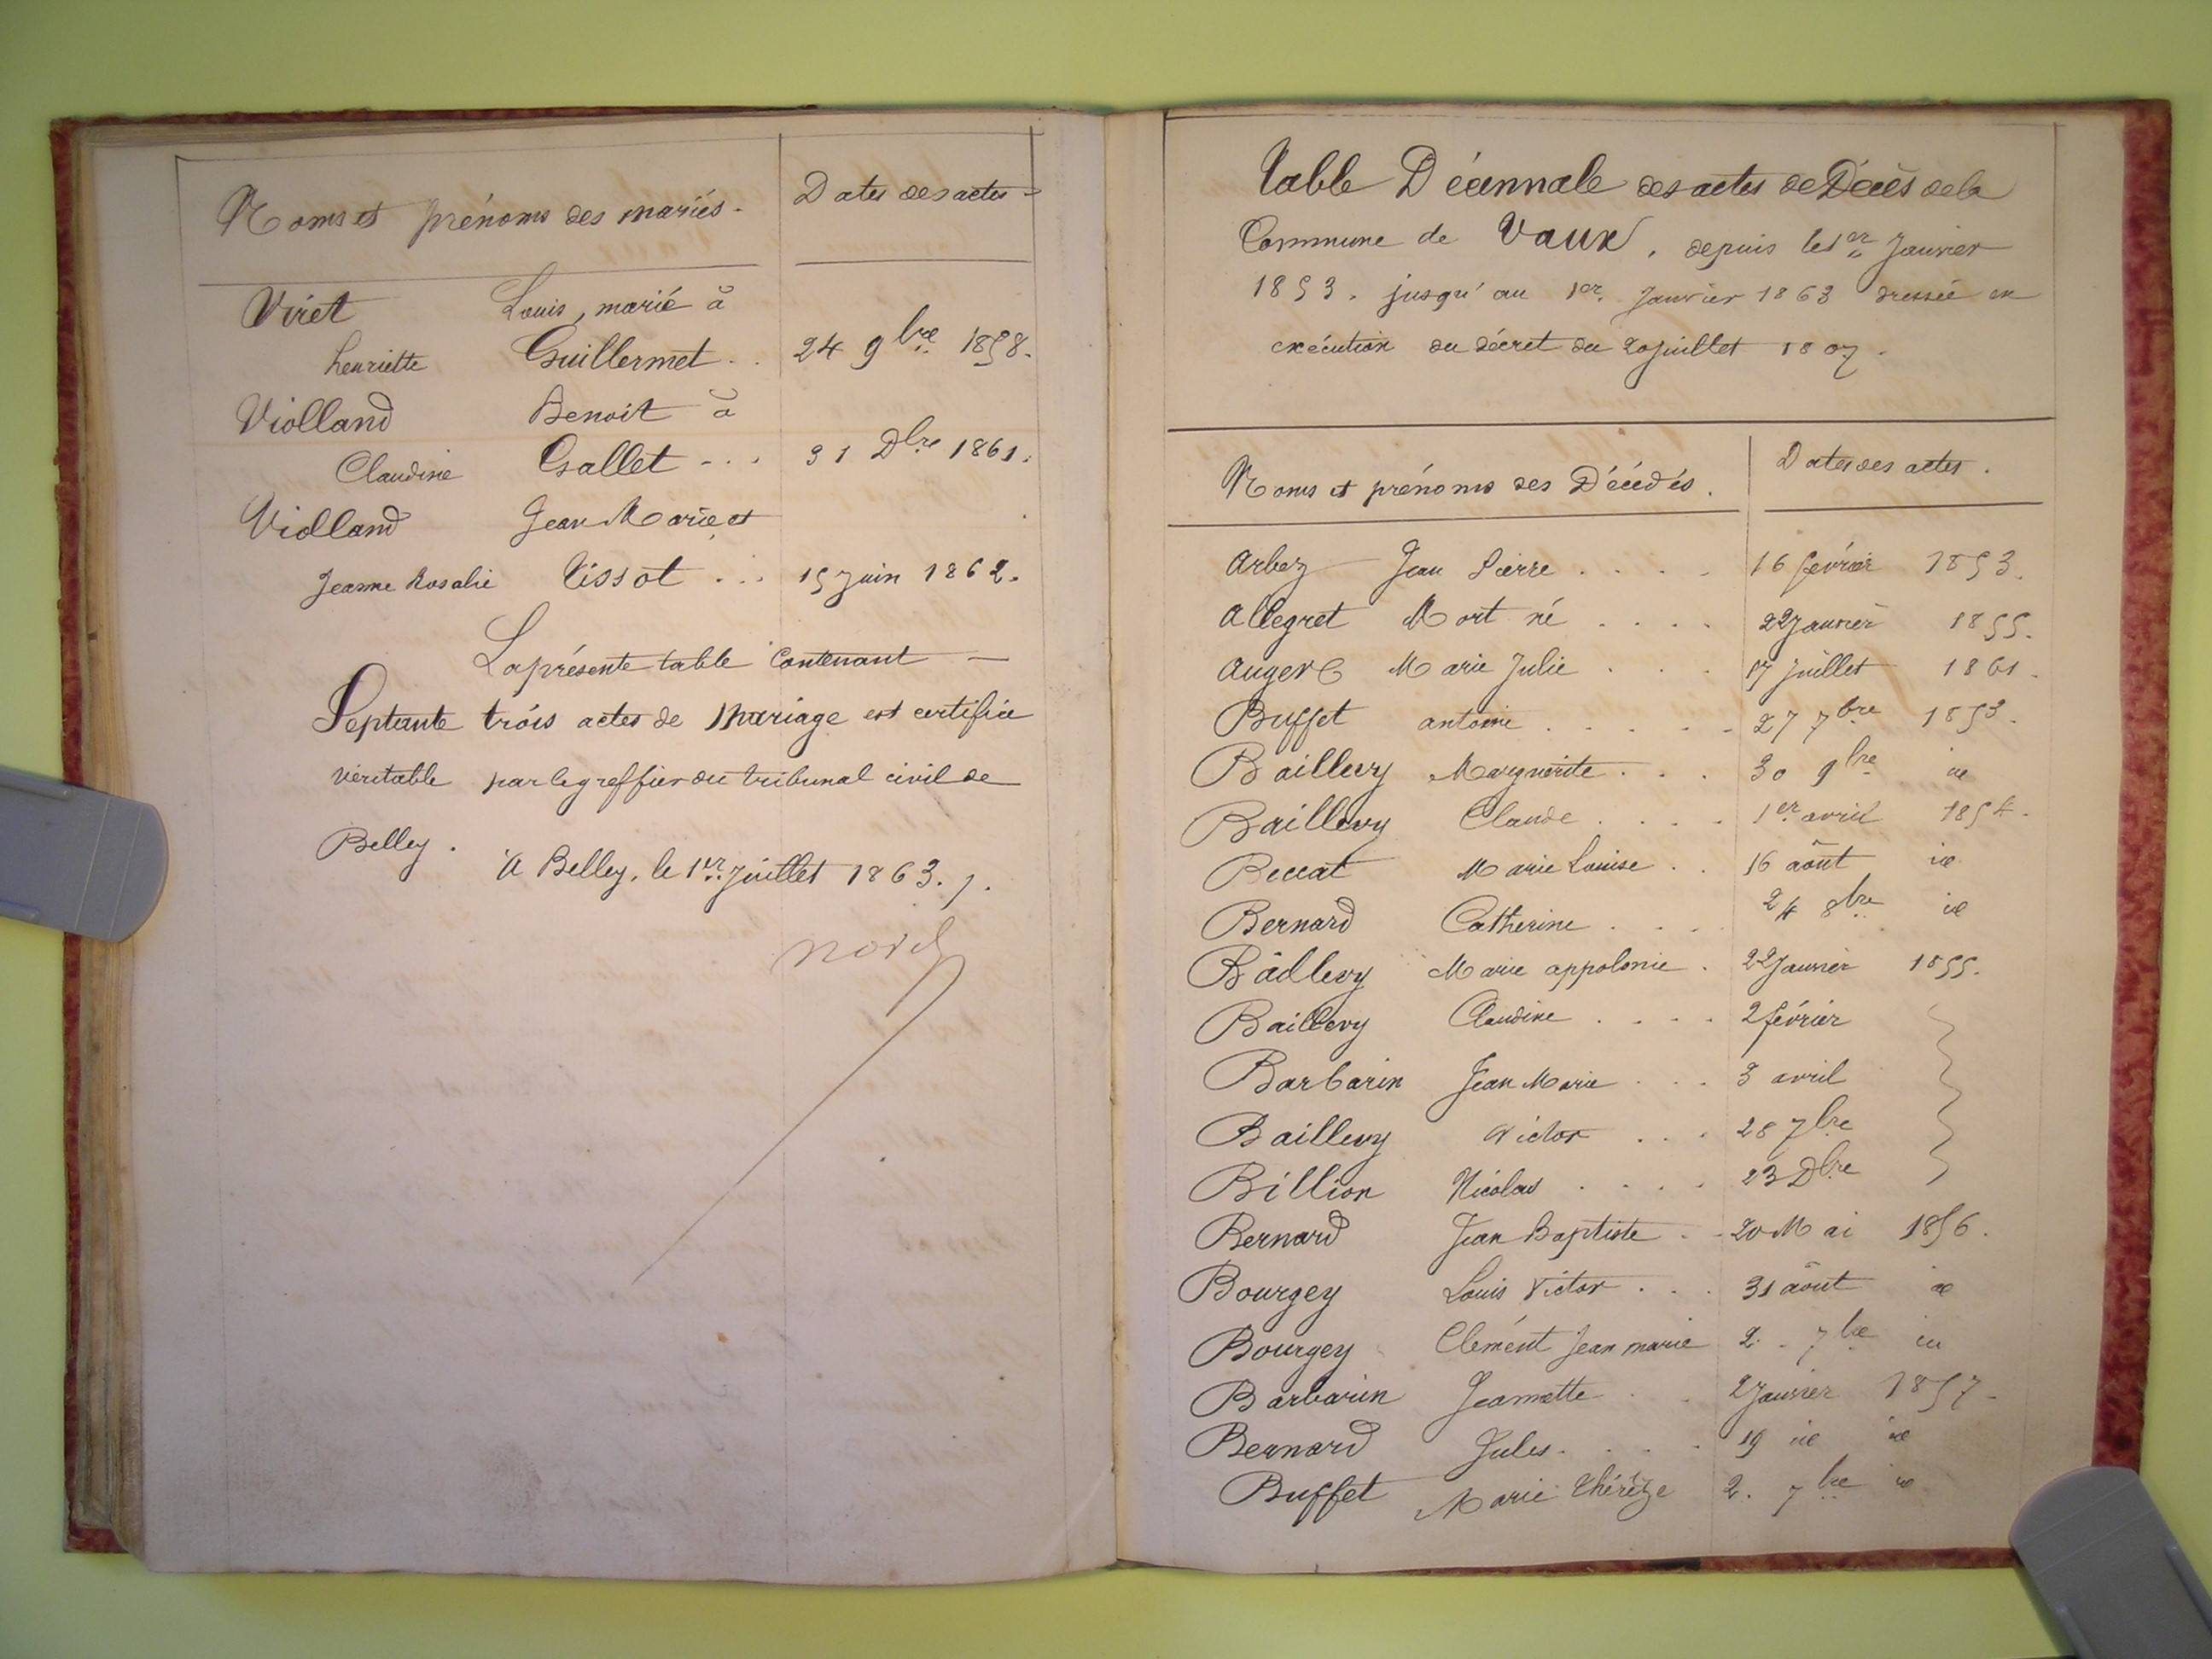 Noms et prénoms des mariés. Dates des actes
Viret Louis, marié à
henriette Guillermet . . 24 9bre 1858.
Violland Benoit à
Claudine Gallet - . . 31 Dbre 1861.
Violland Jean Marie, et
Jeanne Rosalie Tissot . . . 15 Juin 1862.
La présente table Contenant —
Septante trois actes de Mariage est certifiée
véritable par le greffier du tribunal civil de
Belley.
A Belley, le 1er Juillet 1863. /.
Table Décennale des actes de Décès de la
Commune de Vaux, depuis le 1er Janvier
1853. jusqu'au 1er Janvier 1863 dressée en
exécution du décret du 20 Juillet 1807.
Noms et prénoms des Décédés. Dates des actes.
Arbez Jean Pierre . . . . 16 février 1853.
Allegret Mort né . . . . 22 Janvier 1855.
Auger Marie Julie . . . 17 Juillet 1861.
Buffet antoine . . . . . 27 7bre 1853.
Baillevy Marguerite . . . 30 9bre id
Baillevy Claude . . . . 1er avril 1854.
Beccat Marie Louise . . 16 août id
Bernard Catherine . . . 24 8bre id
Badlevy Marie appolonie . 22 Janvier 1855.
Baillevy Claudine . . . . 2 février
Barbarin Jean Marie . . . 3 avril
Baillevy Victor . . . 28 7bre
Billion Nicolas . . . . 23 Dbre
Bernard Jean Baptiste . . 20 Mai 1856.
Bourgey Louis Victor . . . 31 août id
Bourgey Clément Jean marie 2. 7bre id
Barbarin Jeannette . . 2 Janvier 1857.
Bernard Jules . . . . 19 id id
Buffet Marie Thérèze 2. 7bre id